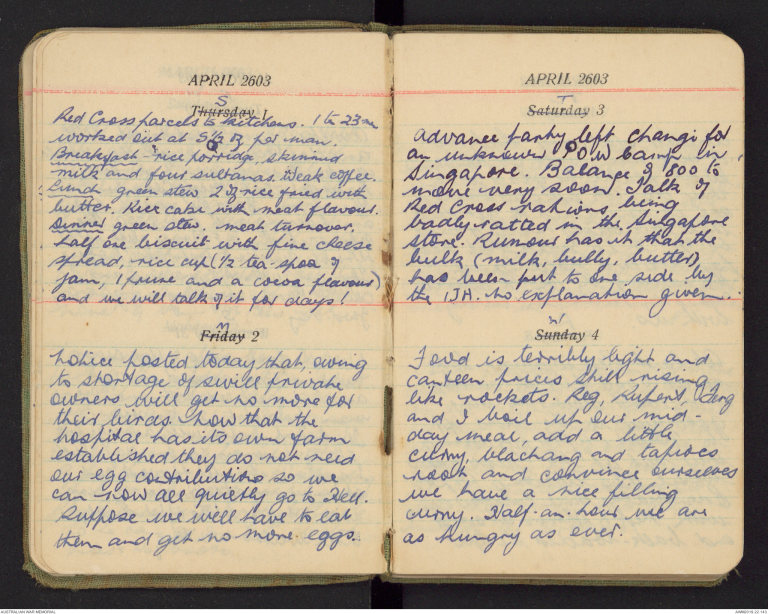 APRIL 2603
S
Thursday 1
Red Cross parcels to kitchens. 1 to 23 men
worked out at 5½ oz per man.
Breakfast - rice porridge, skimmed
milk and four sultanas. Weak coffee.
Lunch green stew 2 oz rice fried with
butter. Rice cake with meat flavour.
Dinner green stew, meat turnover.
half one biscuit with fine cheese
spread, rice cup (½ tea-spoon of
jam, 1 prune and a cocoa flavour)
and we will talk of it for days!
Friday 2
Notice posted today that, owing
to shortage of swill private
owners will get no more for
their birds. Now that the
hospital has its own farm
established they do not need
our egg contributions so we
can now all quietly go to Hell.
Suppose we will have to eat
them and get no more eggs.
APRIL 2603
T
Saturday 3
Advance party left Changi for
an unknown P.O.W Camp in
Singapore. Balance of 800 to
move very soon. Talk of
Red Cross rations being
badly ratted in the Singapore
store. Rumour has it that the
bulk (milk, bully, butter)
has been put to one side by
the IJA. No explanation given.
Sunday 4
Food is terribly light and
canteen prices still rising
like rockets. Reg, Rupert, Ferg
and I boil up our mid-
day meal, add a little
curry, blachang and tapioca
root and convince ourselves
we have a nice filling
curry. Half-an-hour we are
as hungry as ever.
AUSTRALIAN WAR MEMORIAL